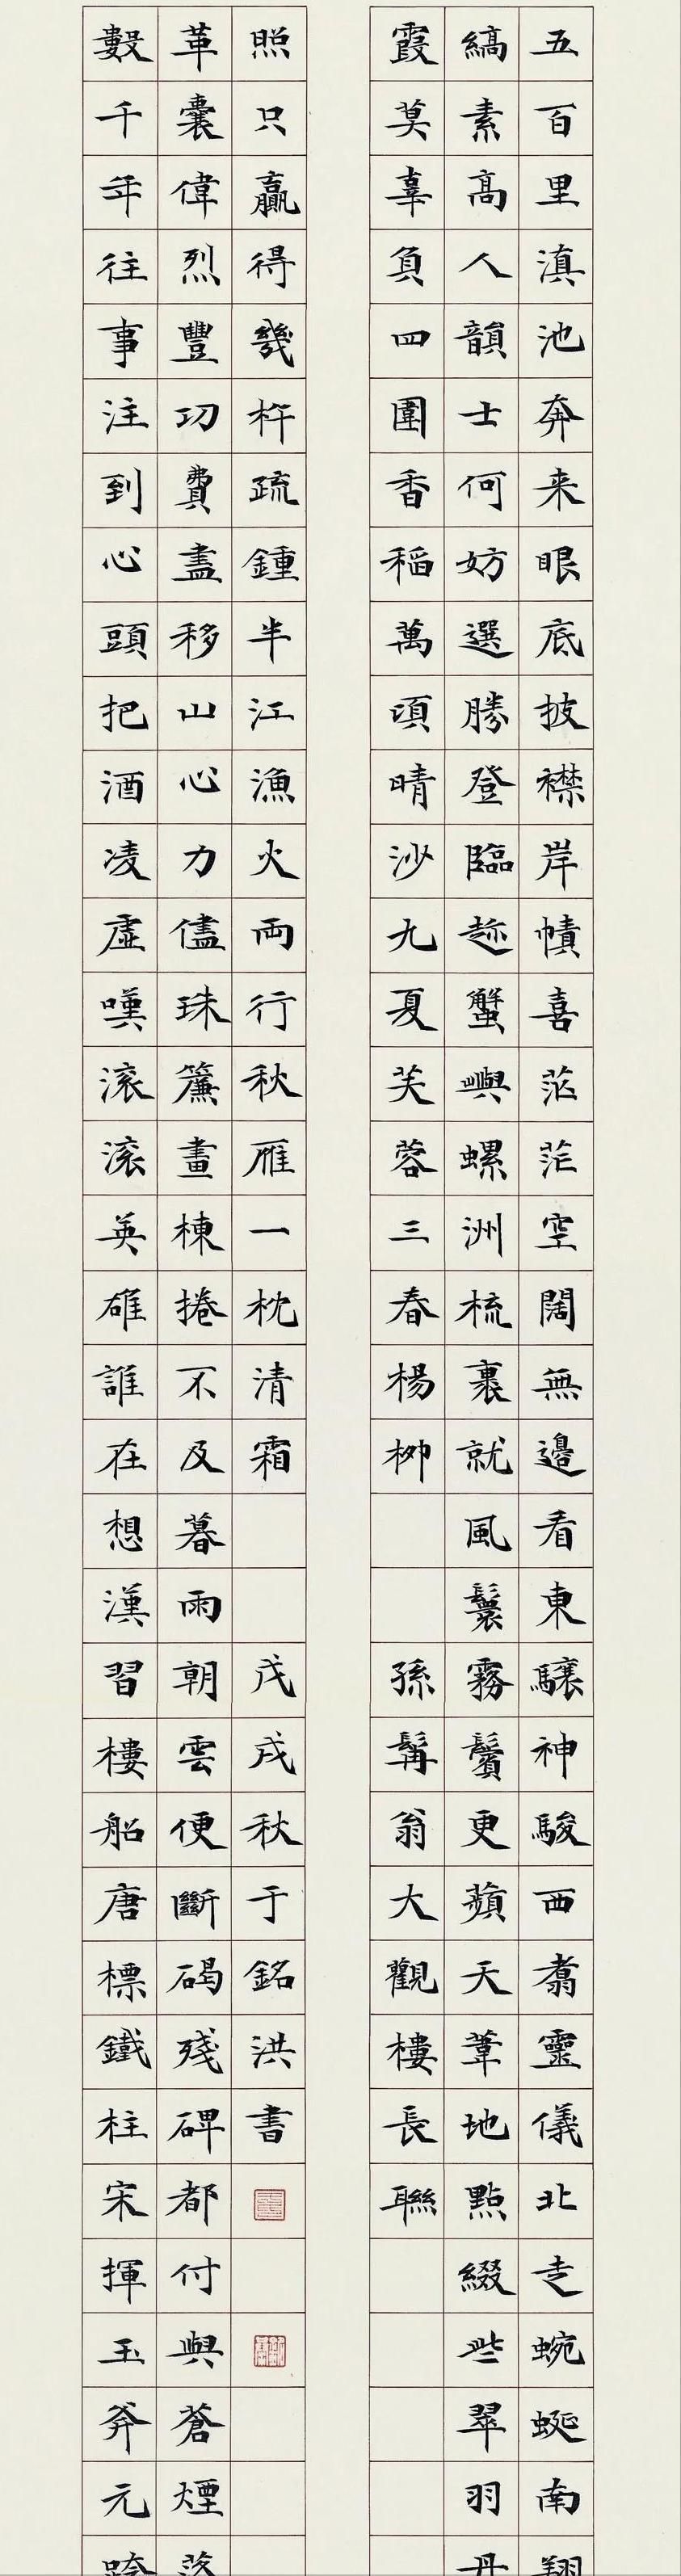 五百里滇池奔来眼底披襟岸幘喜茫茫空闊無邊看東驤神駿西翥靈儀北走蜿蜒南翔
縞素高人韻士何妨選勝登臨趂蟹嶼螺洲梳裹就風鬟霧鬢更蘋天葦地點綴些翠羽丹
霞莫辜負四圍香稻萬頃晴沙九夏芙蓉三春楊柳
孫髯翁大觀樓長聯
數千年往事注到心頭把酒凌虛嘆滚滚英雄誰在想漢習樓船唐標鐵柱宋揮玉斧元跨
革囊偉烈豐功費盡移山心力儘珠簾畫棟捲不及暮雨朝雲便斷碣殘碑都付與蒼煙落
照只贏得幾杵疏鍾半江漁火両行秋雁一枕清霜
戊戌秋于銘洪書